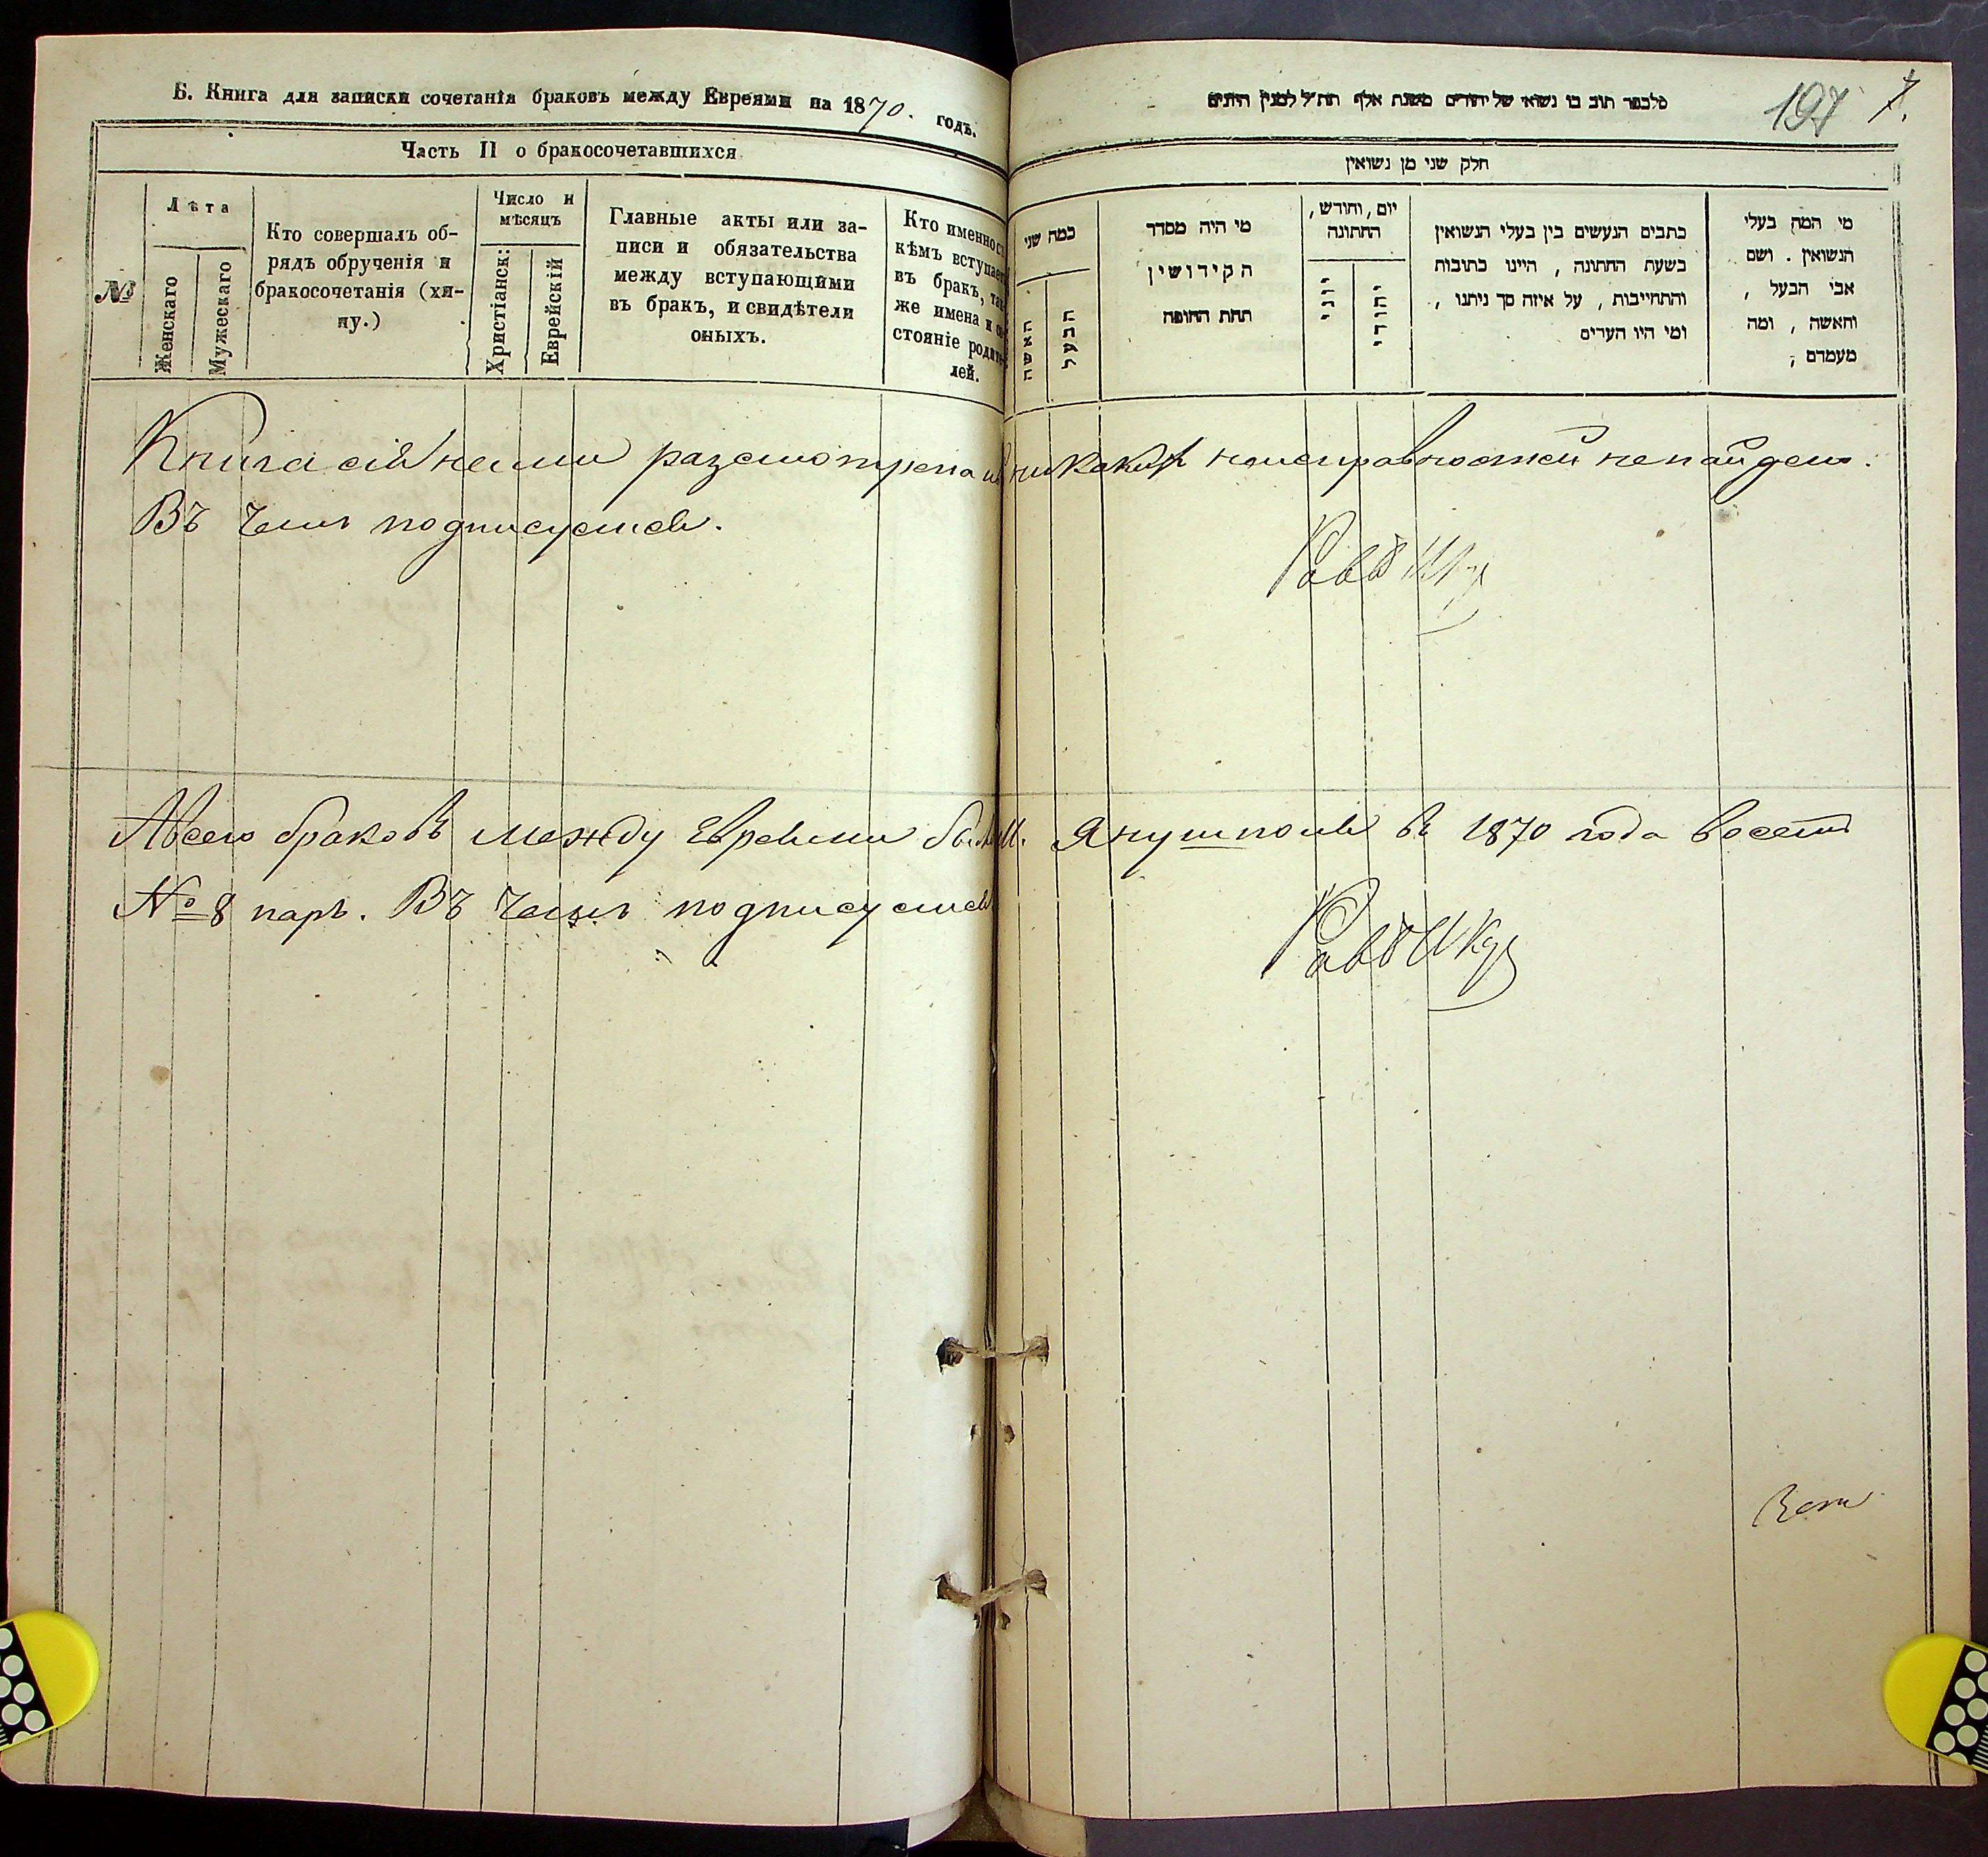 Б. Книга для записки сочетанія браковъ между Евреями на 1870. годъ.
Часть II о бракосочетавшихся
№
Лѣта
Женскаго
Мужескаго
Кто совершалъ об-
рядъ обрученія и
бракосочетанія (хи-
пу.)
Число и
мѣсяцъ
Христіанск:
Еврейскій
Главные акты или за-
писи и обязательства
между вступающими
въ бракъ, и свидѣтели
оныхъ.
Кто именно с
кѣмъ вступает
въ бракъ, так
же имена и со
стояніе родите
лей.
197 7.
חלק שני מן נשואין
כמה שני
האשה
הבעל
מי היה מסדר
הקידושין
תחת החופה
יום, וחודש,
החתונה
יוני
יהודי
כתבים הנעשים בין בעלי הנשואין
בשעת החתונה, היינו כתובות
והתחייבות, על איזה סך ניתנו,
ומי היו העדים
מי המה בעלי
הנשואין. ושם
אבי הבעל,
והאשה, ומה
מעמדם;
Книга сія нами разсмотрена и никаких неисправностей ненайдено.
Въ чемъ подписуемся.
Равв
Авсего браковъ между Евреями было М. Янушполе въ 1870 года восемь
№ 8 паръ. Въ чемъ подписуемся
Равв